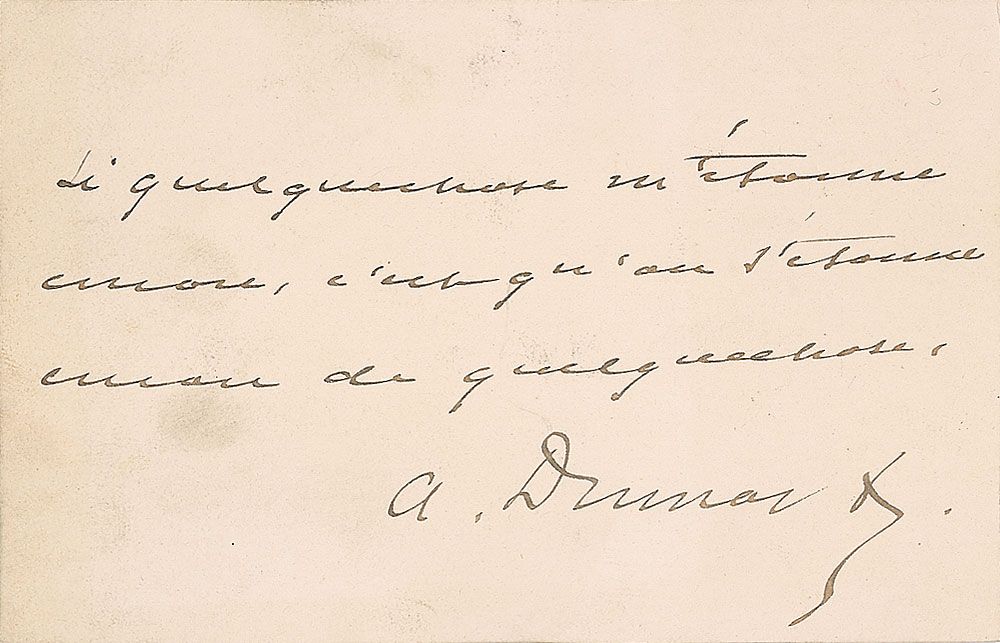 Si quelquechose m'étonne
encore, c'est qu'on s'étonne
encore de quelquechose.
A. Dumas f.